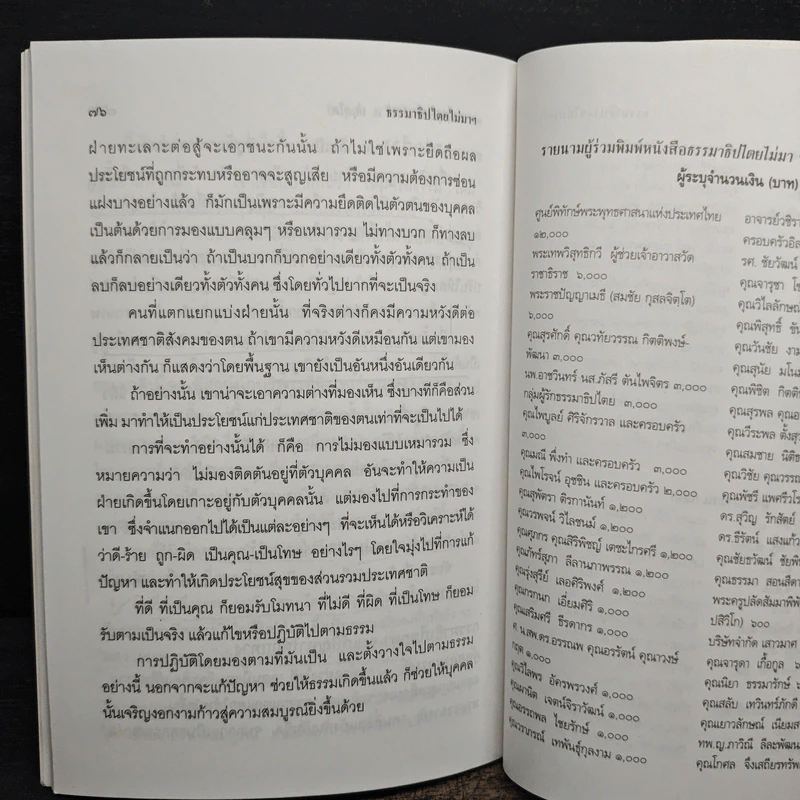 ๗๖
ธรรมาธิปไตยไม่มาฯ
ฝ่ายทะเลาะต่อสู้จะเอาชนะกันนั้น ถ้าไม่ใช่เพราะยึดถือผล
ประโยชน์ที่ถูกกระทบหรืออาจจะสูญเสีย หรือมีความต้องการซ่อน
แฝงบางอย่างแล้ว ก็มักเป็นเพราะมีความยึดติดในตัวตนของบุคคล
เป็นต้นด้วยการมองแบบคลุมๆ หรือเหมารวม ไม่ทางบวก ก็ทางลบ
แล้วก็กลายเป็นว่า ถ้าเป็นบวกก็บวกอย่างเดียวทั้งตัวทั้งคน ถ้าเป็น
ลบก็ลบอย่างเดียวทั้งตัวทั้งคน ซึ่งโดยทั่วไปยากที่จะเป็นจริง
คนที่แตกแยกแบ่งฝ่ายนั้น ที่จริงต่างก็คงมีความหวังดีต่อ
ประเทศชาติสังคมของตน ถ้าเขามีความหวังดีเหมือนกัน แต่เขามอง
เห็นต่างกัน ก็แสดงว่าโดยพื้นฐาน เขายังเป็นอันหนึ่งอันเดียวกัน
ถ้าอย่างนั้น เขาน่าจะเอาความต่างที่มองเห็น ซึ่งบางทีก็คือส่วน
เพิ่ม มาทำให้เป็นประโยชน์แก่ประเทศชาติของตนเท่าที่จะเป็นไปได้
การที่จะทำอย่างนั้นได้ ก็คือ การไม่มองแบบเหมารวม ซึ่ง
หมายความว่า ไม่มองติดตันอยู่ที่ตัวบุคคล อันจะทำให้ความเป็น
ฝ่ายเกิดขึ้นโดยเกาะอยู่กับตัวบุคคลนั้น แต่มองไปที่การกระทำของ
เขา ซึ่งจำแนกออกไปได้เป็นแต่ละอย่างๆ ที่จะเห็นได้หรือวิเคราะห์ได้
ว่าดี-ร้าย ถูก-ผิด เป็นคุณ-เป็นโทษ อย่างไรๆ โดยใจมุ่งไปที่การแก้
ปัญหา และทำให้เกิดประโยชน์สุขของส่วนรวมประเทศชาติ
ที่ดี ที่เป็นคุณ ก็ยอมรับโมทนา ที่ไม่ดี ที่ผิด ที่เป็นโทษ ก็ยอม
รับตามเป็นจริง แล้วแก้ไขหรือปฏิบัติไปตามธรรม
การปฏิบัติโดยมองตามที่มันเป็น และตั้งวางใจไปตามธรรม
อย่างนี้ นอกจากจะแก้ปัญหา ช่วยให้ธรรมเกิดขึ้นแล้ว ก็ช่วยให้บุคคล
นั้นเจริญงอกงามก้าวสู่ความสมบูรณ์ยิ่งขึ้นด้วย
รายนามผู้ร่วมพิมพ์หนังสือธรรมาธิปไตยไม่มา
ผู้ระบุจำนวนเงิน (บาท)
ศูนย์พิทักษ์พระพุทธศาสนาแห่งประเทศไทย
๑๒,๐๐๐
พระเทพวิสุทธิกวี ผู้ช่วยเจ้าอาวาสวัด
ราชาธิราช ๖,๐๐๐
พระราชปัญญาเมธี (สมชัย กุสลจิตฺโต)
๖,๐๐๐
คุณสุรศักดิ์ คุณวทัยวรรณ กิตติพงษ์-
พัฒนา ๓,๐๐๐
นพ.อาชวินทร์ นส.ภัสรี ตันไพจิตร ๓,๐๐๐
กลุ่มผู้รักธรรมาธิปไตย ๓,๐๐๐
คุณไพบูลย์ ศิริจักรวาล และครอบครัว
๓,๐๐๐
คุณมณี พึ่งทำ และครอบครัว ๓,๐๐๐
คุณไพโรจน์ อุชชิน และครอบครัว ๒,๐๐๐
คุณสุพัตรา ติรกานันท์ ๑,๒๐๐
คุณวรพจน์ วิไลชนม์ ๑,๒๐๐
คุณศุภกร คุณสิริพิชญ์ เตชะไกรศรี ๑,๒๐๐
คุณภัทร์สุภา ลีลานภาพรรณ ๑,๒๐๐
คุณรุ่งสุรีย์ เลอศิริพงศ์ ๑,๒๐๐
คุณกรกนก เอี่ยมศิริ ๑,๐๐๐
คุณเสริมศรี ธีรดากร ๑,๐๐๐
ศ.น.สพ.ดร.อรรณพ คุณอรรัตน์ คุณาวงษ์
กฤต ๑,๐๐๐
คุณวิไลพร อัครพรวงศ์ ๑,๐๐๐
คุณผานิต เจตน์จิราวัฒน์ ๑,๐๐๐
คุณอรรถพล ไชยรักษ์ ๑,๐๐๐
คุณวรากรณ์ เทพันธุ์กุลงาม ๑,๐๐๐
อาจารย์วชิรา
ครอบครัวอิส
รศ. ชัยวัฒน์
คุณจารุชา
คุณวิไลลักษณ์
คุณพิสุทธิ์
คุณวันชัย งาม
คุณสุนัย มโนม
คุณพิชิต กิตติ
คุณสุรพล คุณอ
คุณวีระพล ตั้งสุว
คุณสมชาย นิติธ
คุณวิชัย คุณวรรณ
คุณพัชรี แพศรีวโร
ดร.สุวิญ รักสัตย์
ดร.ธีรัตน์ แสงแก้ว
คุณชัยธวัฒน์ ชัยพิ
คุณธรรมา สอนสีดา
พระครูปลัดสัมมาพิพั
ปสิวิโก) ๖๐๐
บริษัทจำกัด เสาวมาศ
คุณจารุดา เกื้อกูล ๖
คุณนิยา ธรรมารักษ์ ๖
คุณสลับ เทวินทร์ภักดี
คุณเยาวลักษณ์ เนียมส
ทพ.ญ.ภาวิณี ลีละพัฒน
คุณโกศล จึงเสถียรทรัพ